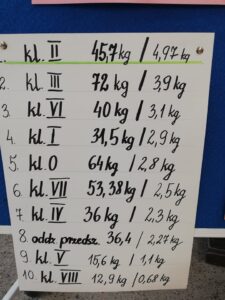 1. kl. II 45,7 kg / 4,97 kg
2. kl. III 72 kg / 3,9 kg
3. kl. VI 40 kg / 3,1 kg
4. kl. I 31,5 kg / 2,9 kg
5. kl. 0 64 kg / 2,8 kg
6. kl. VII 53,38 kg / 2,5 kg
7. kl. IV 36 kg / 2,3 kg
8. oddz. przedsz. 36,4 / 2,27 kg
9. kl. V 15,6 kg / 1,1 kg
10. kl. VIII 12,9 kg / 0,68 kg